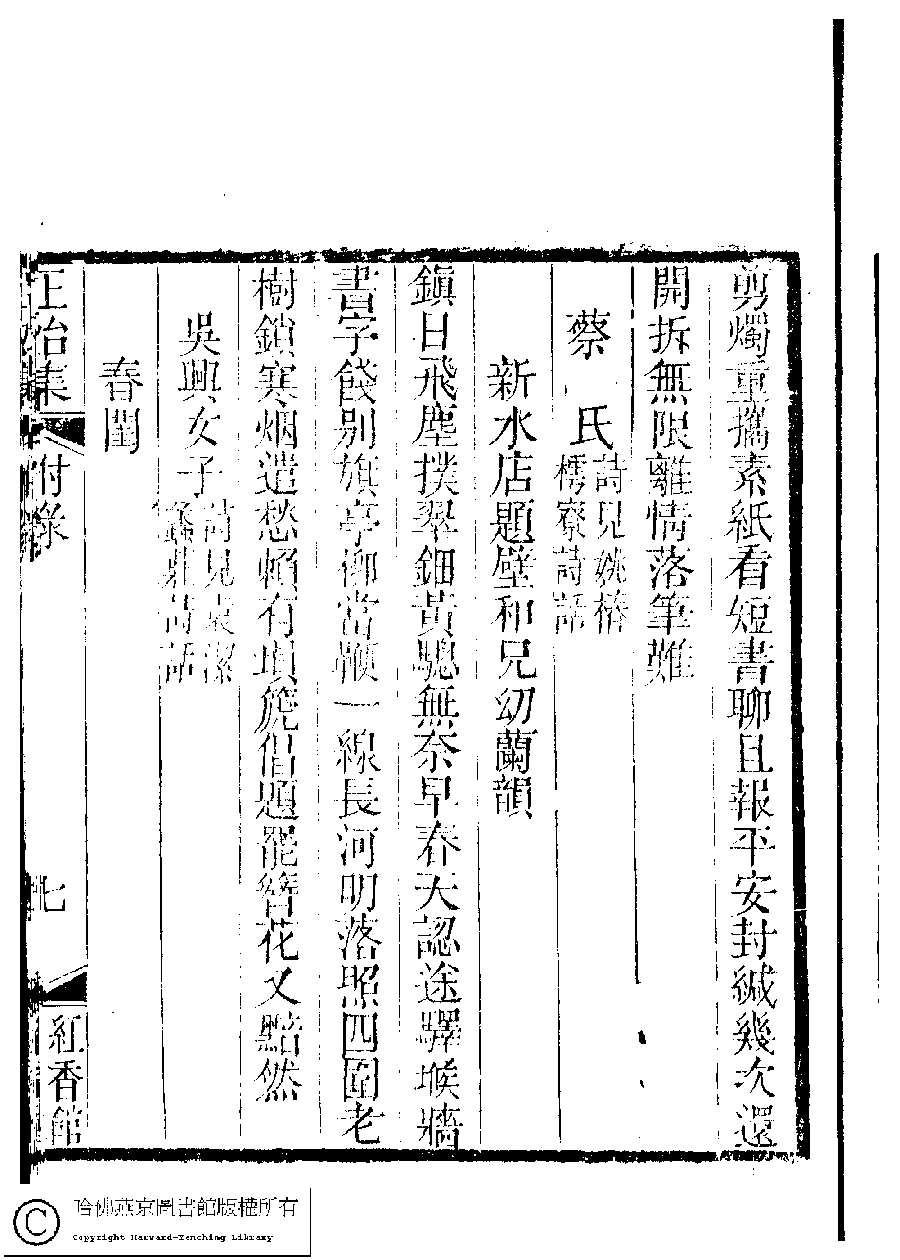 剪燭重攜素紙看短書聊且報平安封緘幾次還
開拆無限離情落筆難
蔡氏
詩見姚椿
樗寮詩話
新水店題壁和兄幼蘭韻
鎮日飛塵撲翠鈿黃驄無奈早春天認途驛堠牆
書字餞別旗亭柳當鞭一線長河明落照四圍老
樹鎖寒烟遣愁賴有塤篪侶題罷簪花又黯然
吳興女子
詩見袁潔
蠡莊詩話
春閨
正始集
附錄
七
紅香館
哈佛燕京圖書館版權所有
Copyright Harvard-Yenching Library